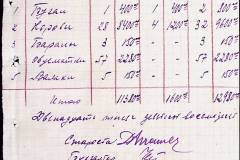 1 Бугаи 1 400- 1 400- 2 800-
2 Коровы 28 8400- 4 1200 32 9600-
3 Бараны 3 150- 3 150-
4 57 2280- 57 2280-
5 3 150- 3 150-
Итого 11380- 1600 12980-
Двенадцать тысяч девятьсот восемьдесят
Староста